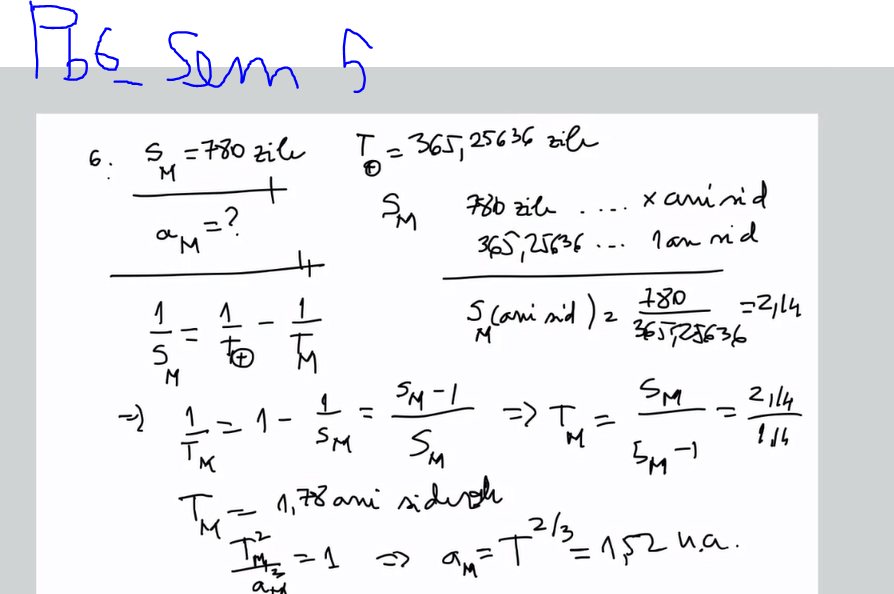 Pb6_Sem 5
6. S_M = 780 zile T_⊕ = 365,25636 zile
a_M = ?
S_M 780 zile .... x ani sid
365,25636 ... 1 an sid
S_M (ani sid) = 780/365,25636 = 2,14
1/S_M = 1/T_⊕ - 1/T_M
=> 1/T_M = 1 - 1/S_M = (S_M - 1)/S_M => T_M = S_M/(S_M - 1) = 2,14/1,14
T_M = 1,78 ani siderali
T_M²/a_M³ = 1 => a_M = T^{2/3} = 1,52 u.a.